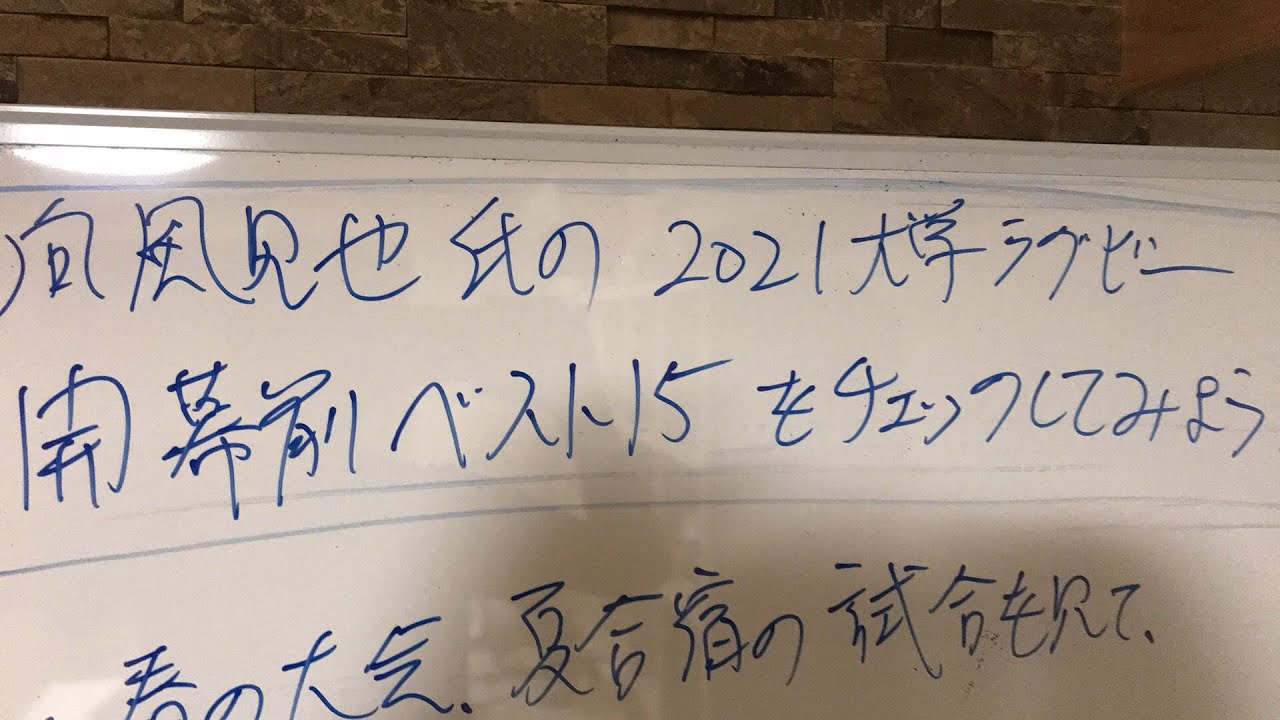 向風見也氏の 2021大学ラグビー
開幕前ベスト15 をチェックしてみよう
・春の大会、夏合宿の試合も見て、